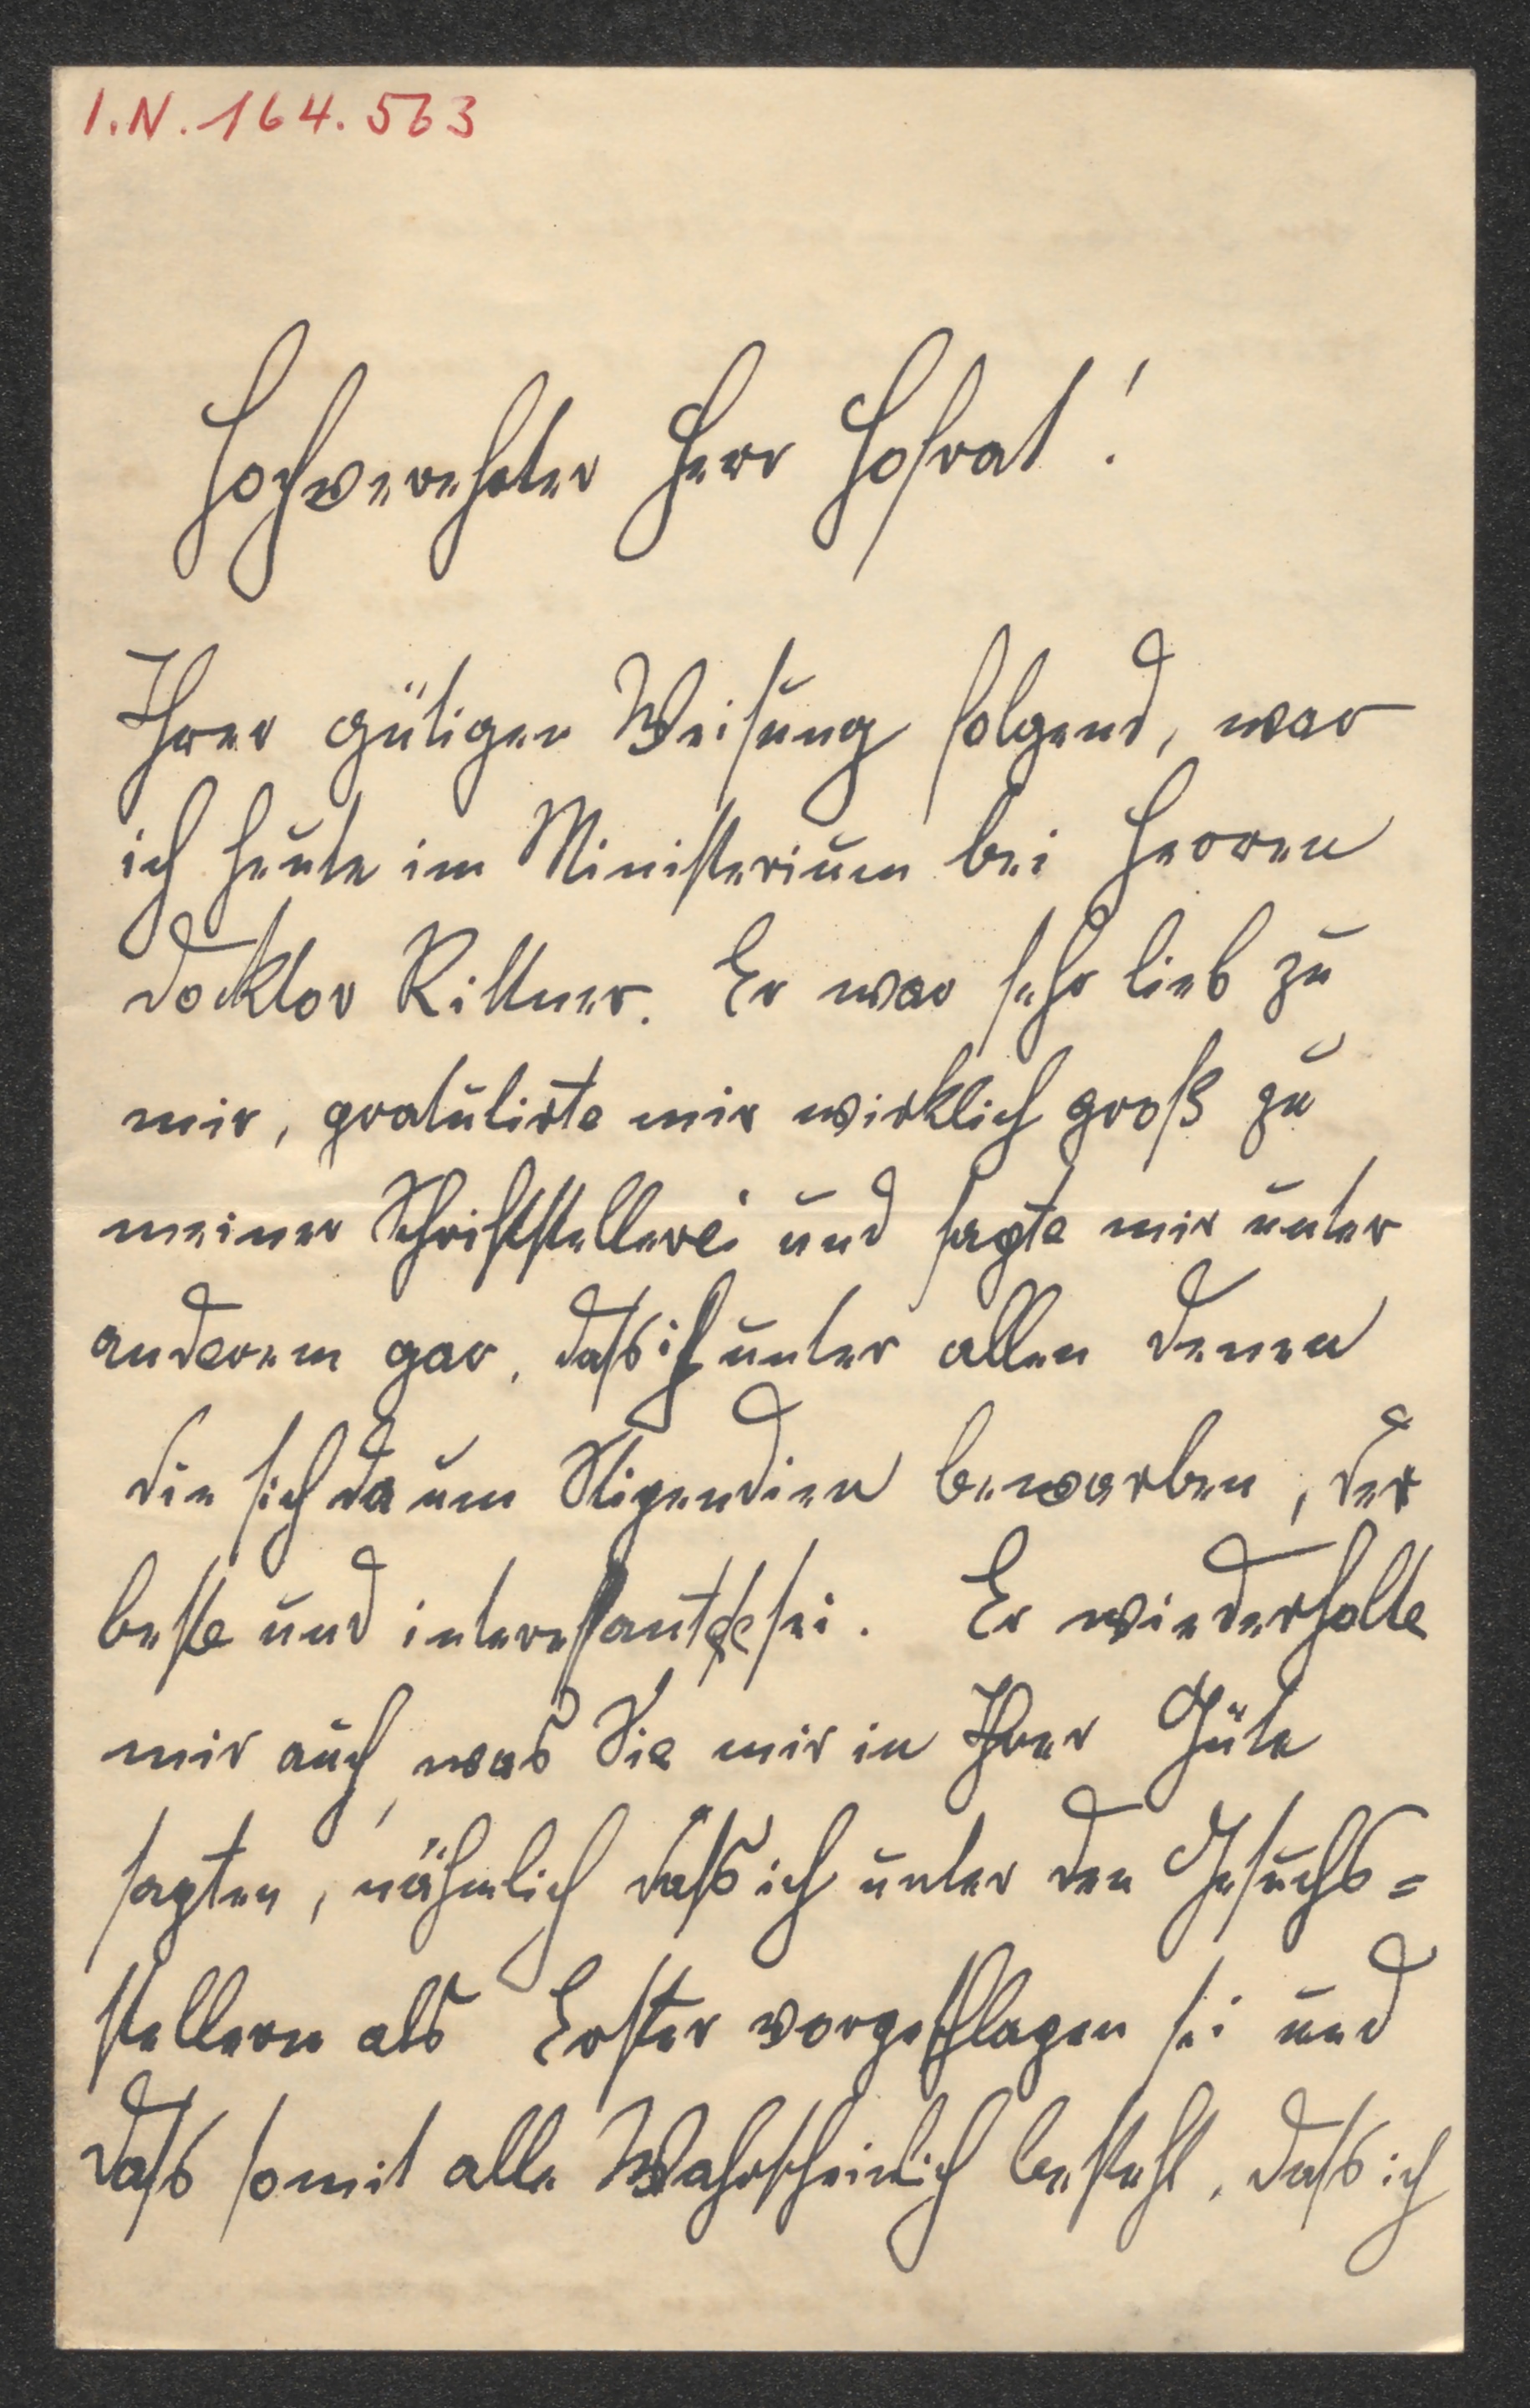 I.N. 164.563
Hochverehrter Herr Hofrat!
Ihrer gütigen Weisung folgend, war
ich heute im Ministerium bei Herren
Docktor Rittner. Er war sehr lieb zu
mir, gratulirte mir wirklich groß zu
meiner Schriftstellerei und sagte mir unter
anderem gar, dass ich unter allen denen
die sich da um Stipendien bewarben, der
beste und interessantste sei. Er wiederholte
mir auch, was Sie mir in Ihrer Güte
sagten, nähmlich dass ich unter den Gesuchs=
stellern als Erster vorgeschlagen sei und
dass somit alle Wahrscheinlich besteht, dass ich